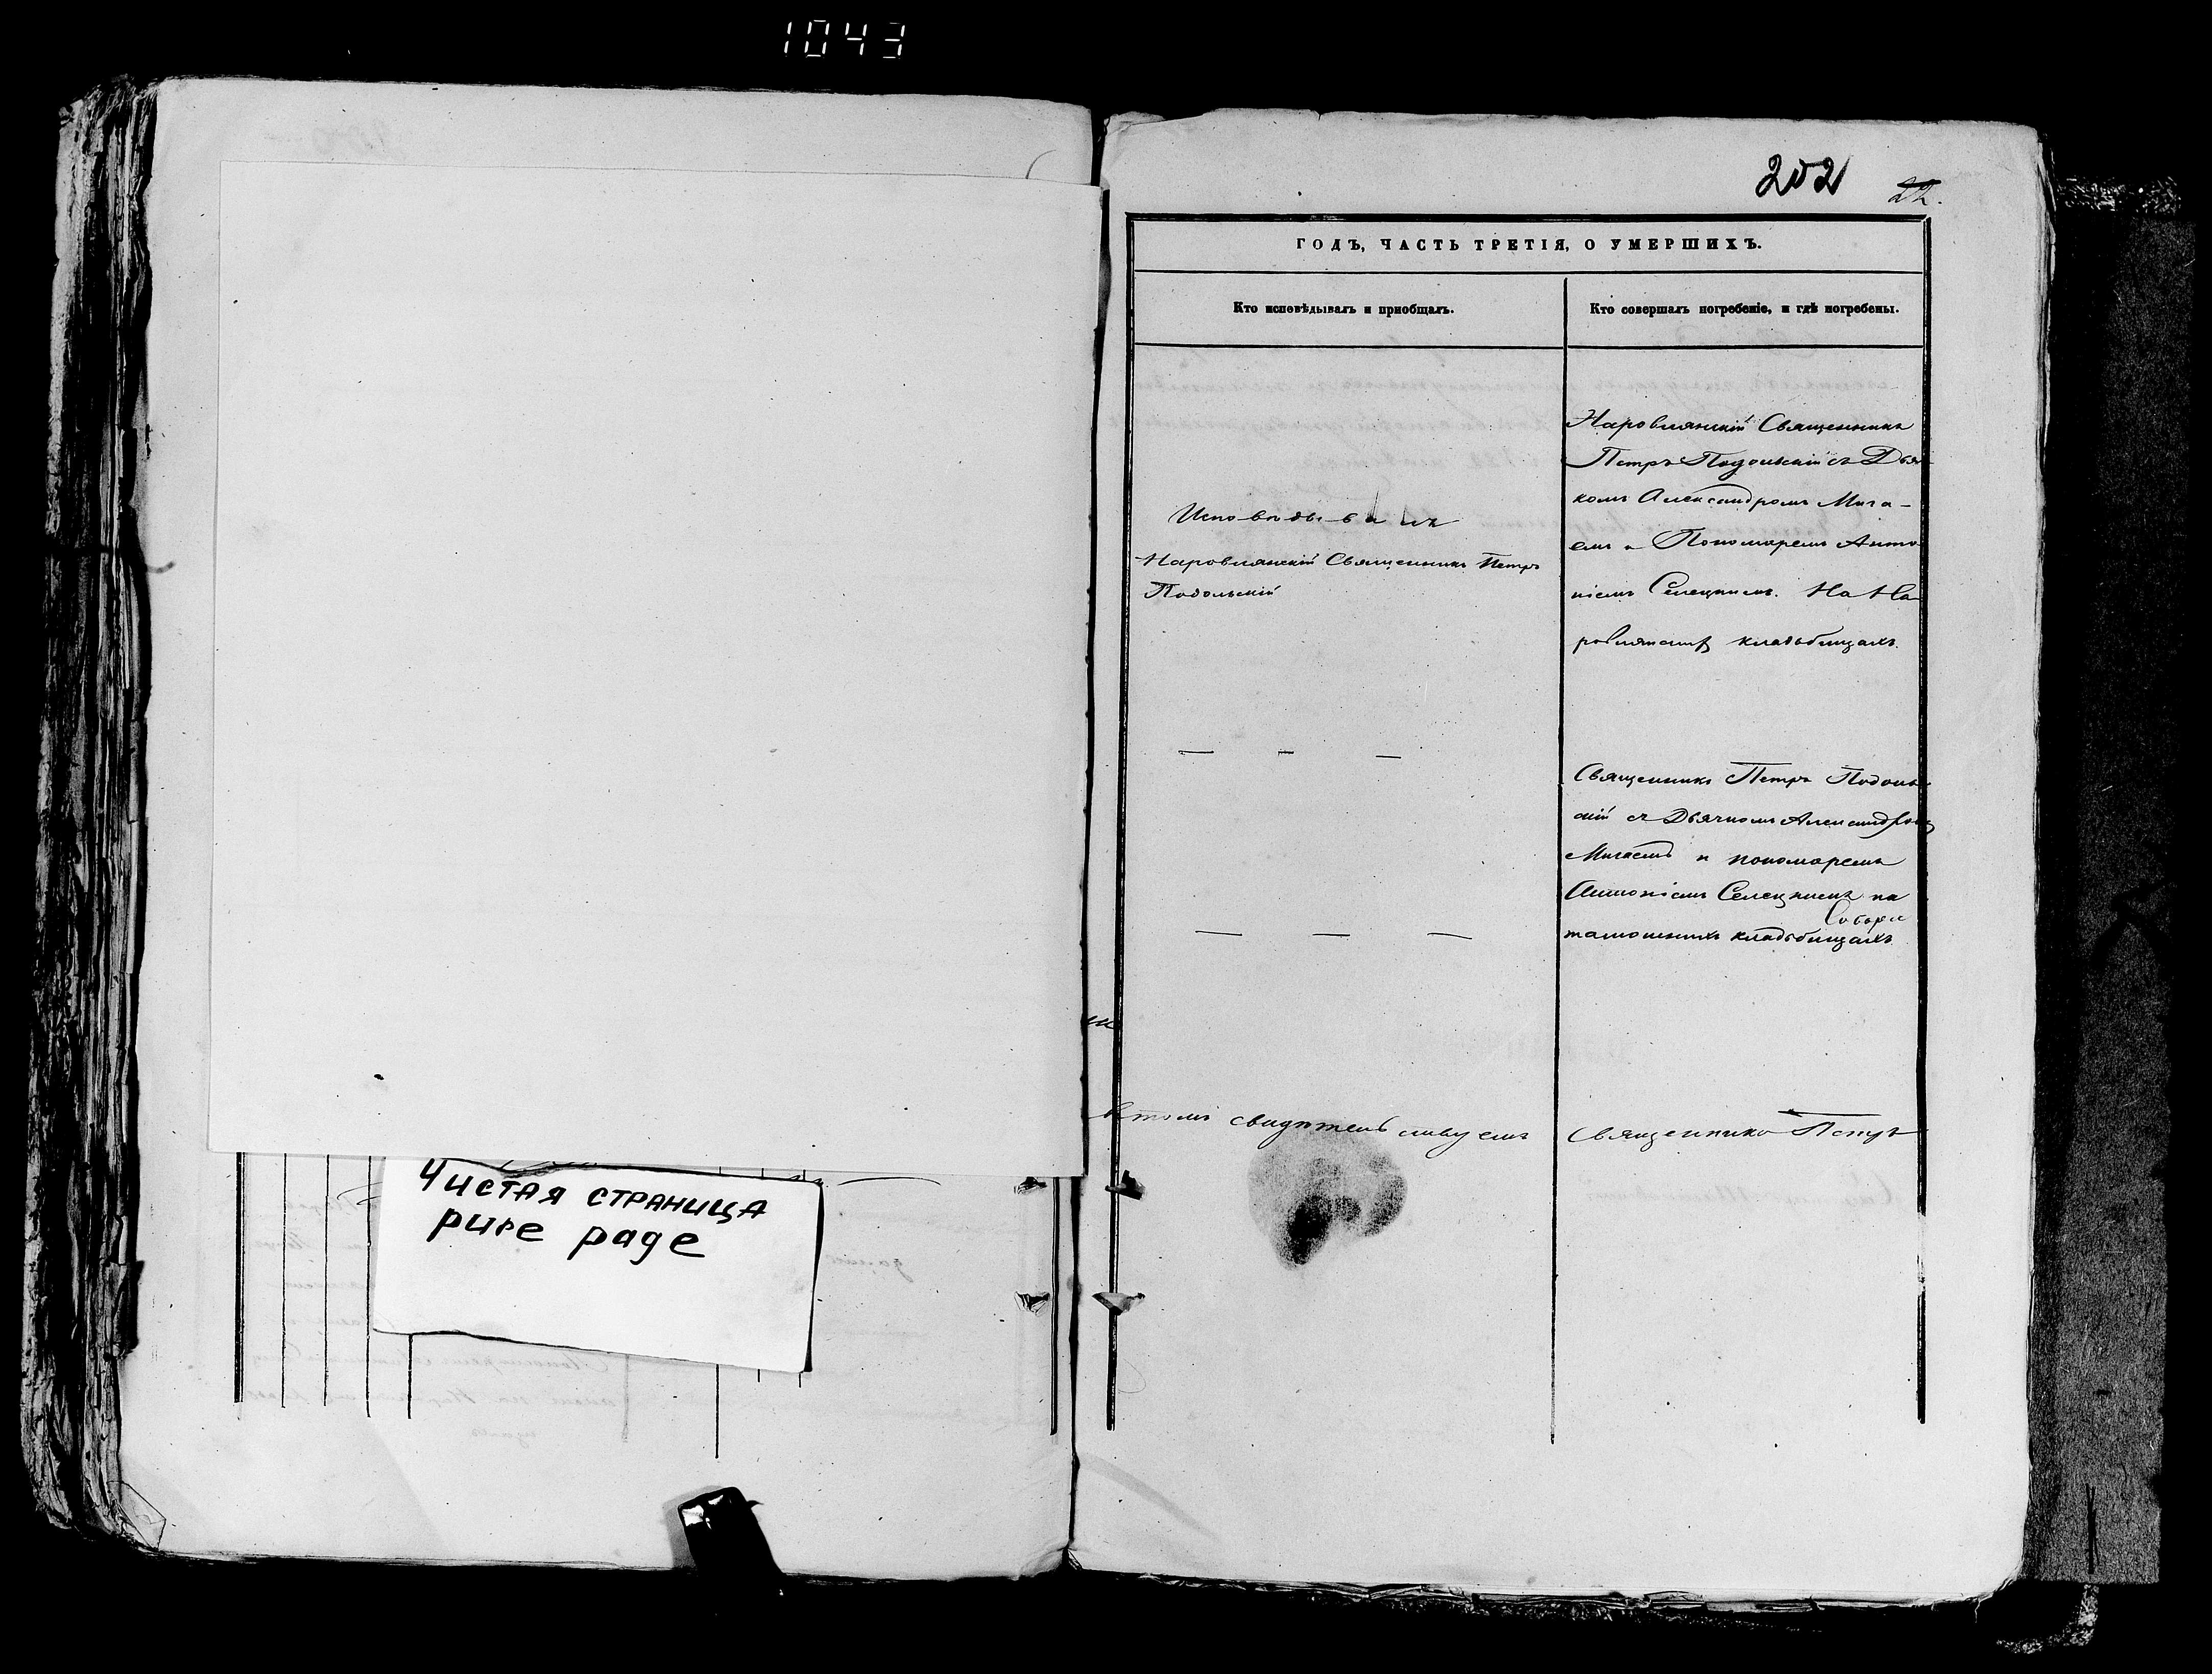 1043
202
22.
ГОДЪ, ЧАСТЬ ТРЕТІЯ, О УМЕРШИХЪ.
Кто исповѣдывалъ и пріобщалъ.
Кто совершалъ погребеніе, и гдѣ погребены.
Исповѣдывалъ
Наровлянскій Священникъ Петръ
Подольскій
Наровлянскій Священникъ
Петръ Подольскій съ Дья
комъ Александромъ Мига-
емъ и Пономаремъ Анто
ніемъ Селецкимъ. На На
кладбищахъ.
Священникъ Петръ Подоль
скій съ Дьячкомъ Александромъ
Мигаемъ и пономаремъ
Антоніемъ Селецкимъ на
тамошнихъ кладбищахъ
томъ свидѣтельствуемъ Священникъ Петръ
Чистая страница
pure page